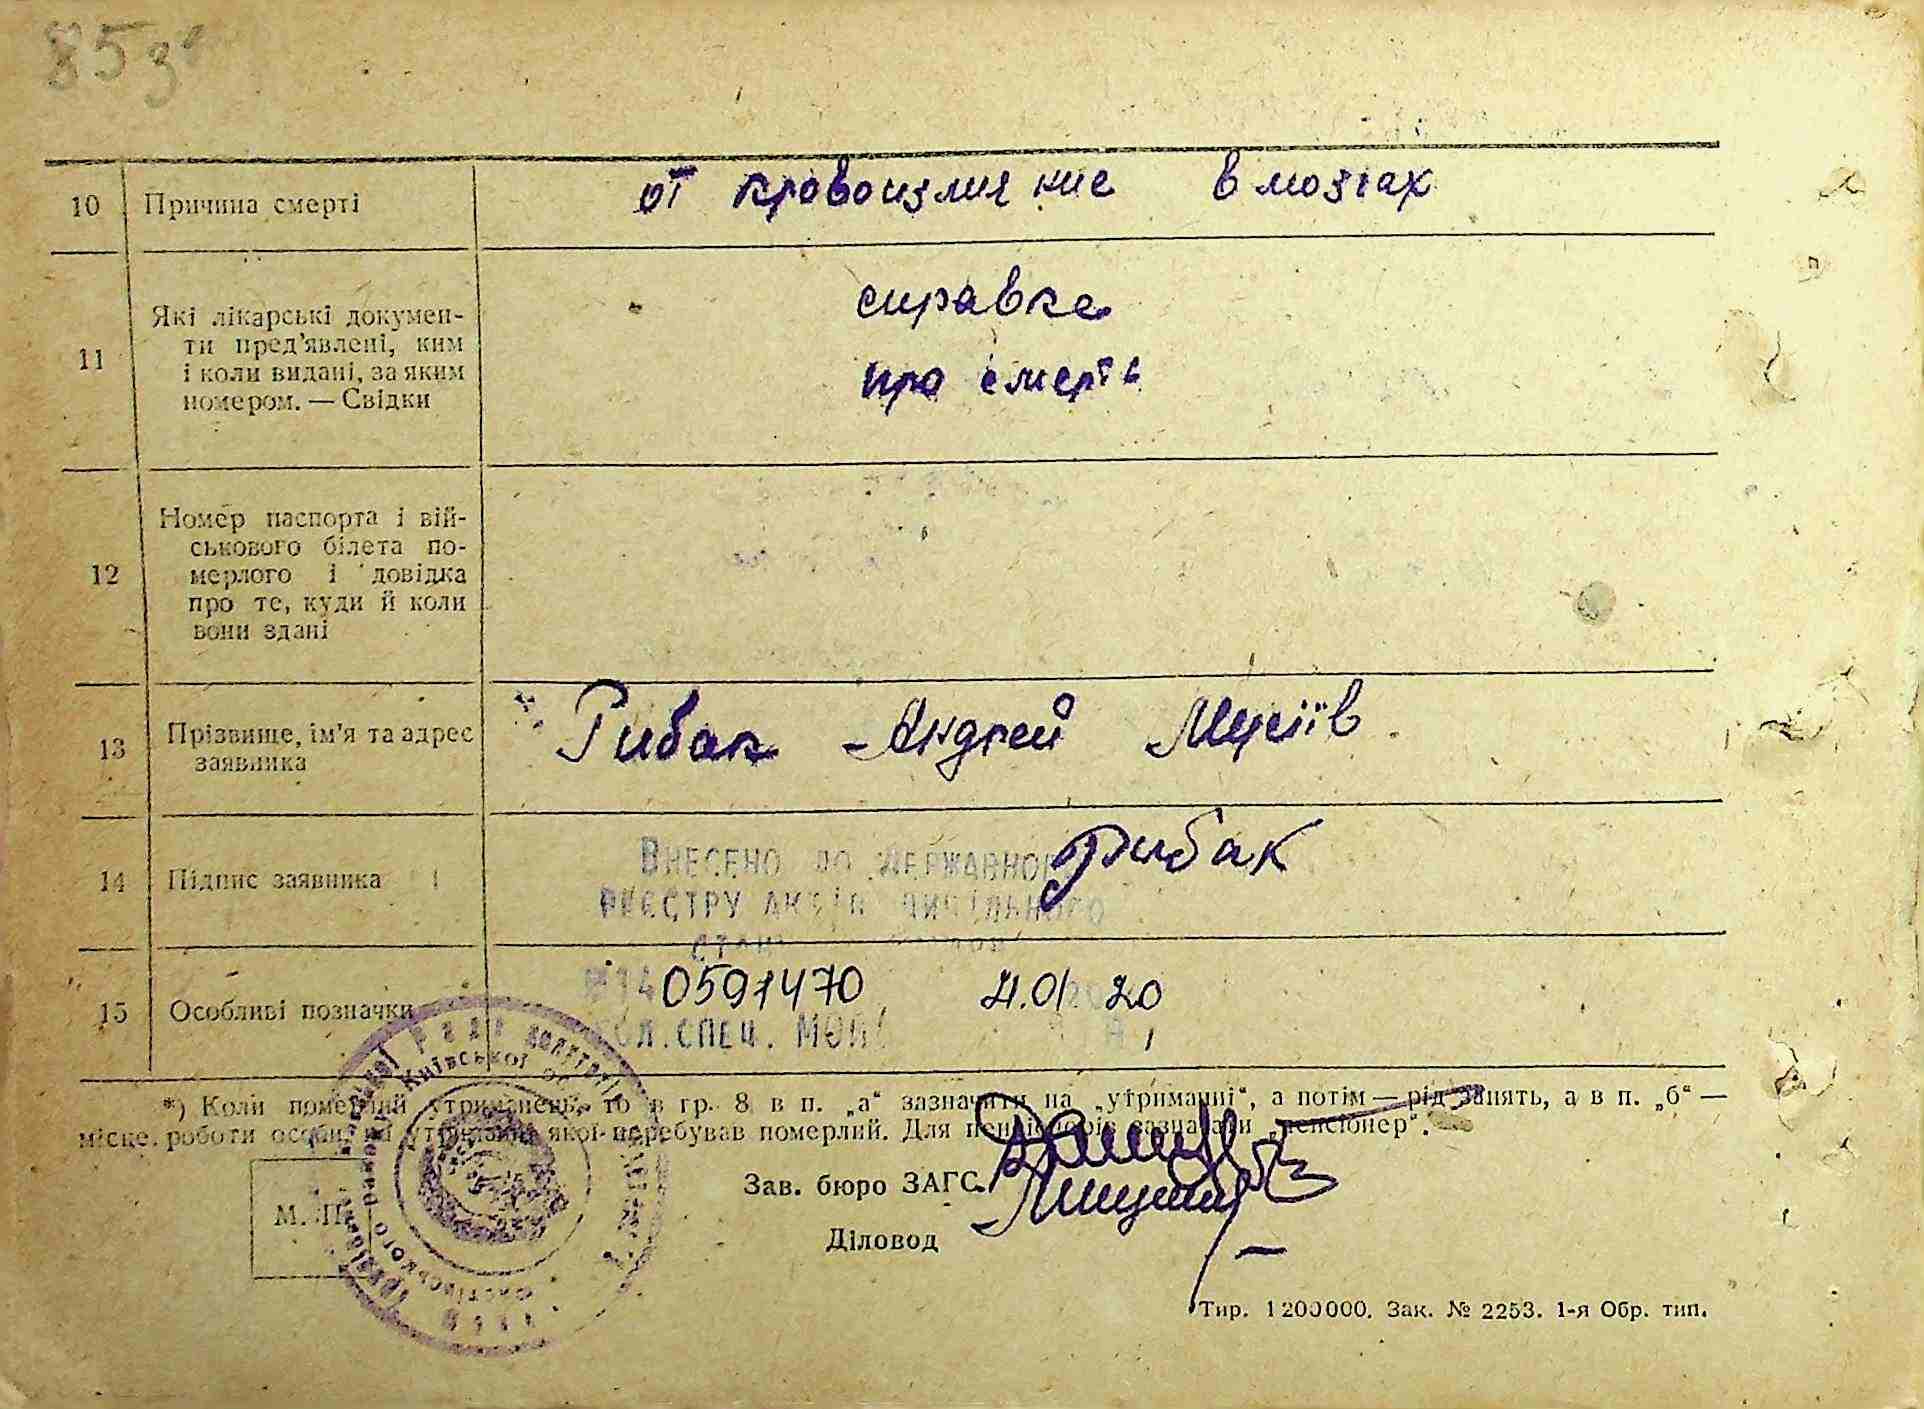 85 зв
10 Причина смерті
от кровоизлияние в мозгах
11 Які лікарські докумен-
ти пред'явлені, ким
і коли видані, за яким
номером. — Свідки
справка
про смерть
12 Номер паспорта і вій-
ськового білета по-
мерлого і довідка
про те, куди й коли
вони здані
13 Прізвище, ім'я та адрес
заявника
Рибак Андрей Мусіїв
14 Підпис заявника
Рибак
Внесено до Державного
реєстру актів цивільного
15 Особливі позначки
0591470
20
ол. спец.
Київської
*) Коли померлий утриманець, то в гр. 8 в п. „а“ зазначити на „утриманні“, а потім — рід занять, а в п. „б“ —
місце роботи особи, на утриманні якої перебував померлий. Для пенсіонерів зазначати „пенсіонер“.
Зав. бюро ЗАГС
М. П.
Діловод
Тир. 1200000. Зак. № 2253. 1-я Обр. тип.